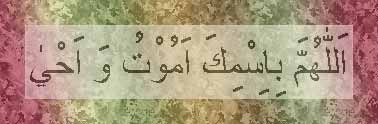 اَللّٰهُمَّ بِاِسْمِكَ اَمُوْتُ وَ اَحْيٰ